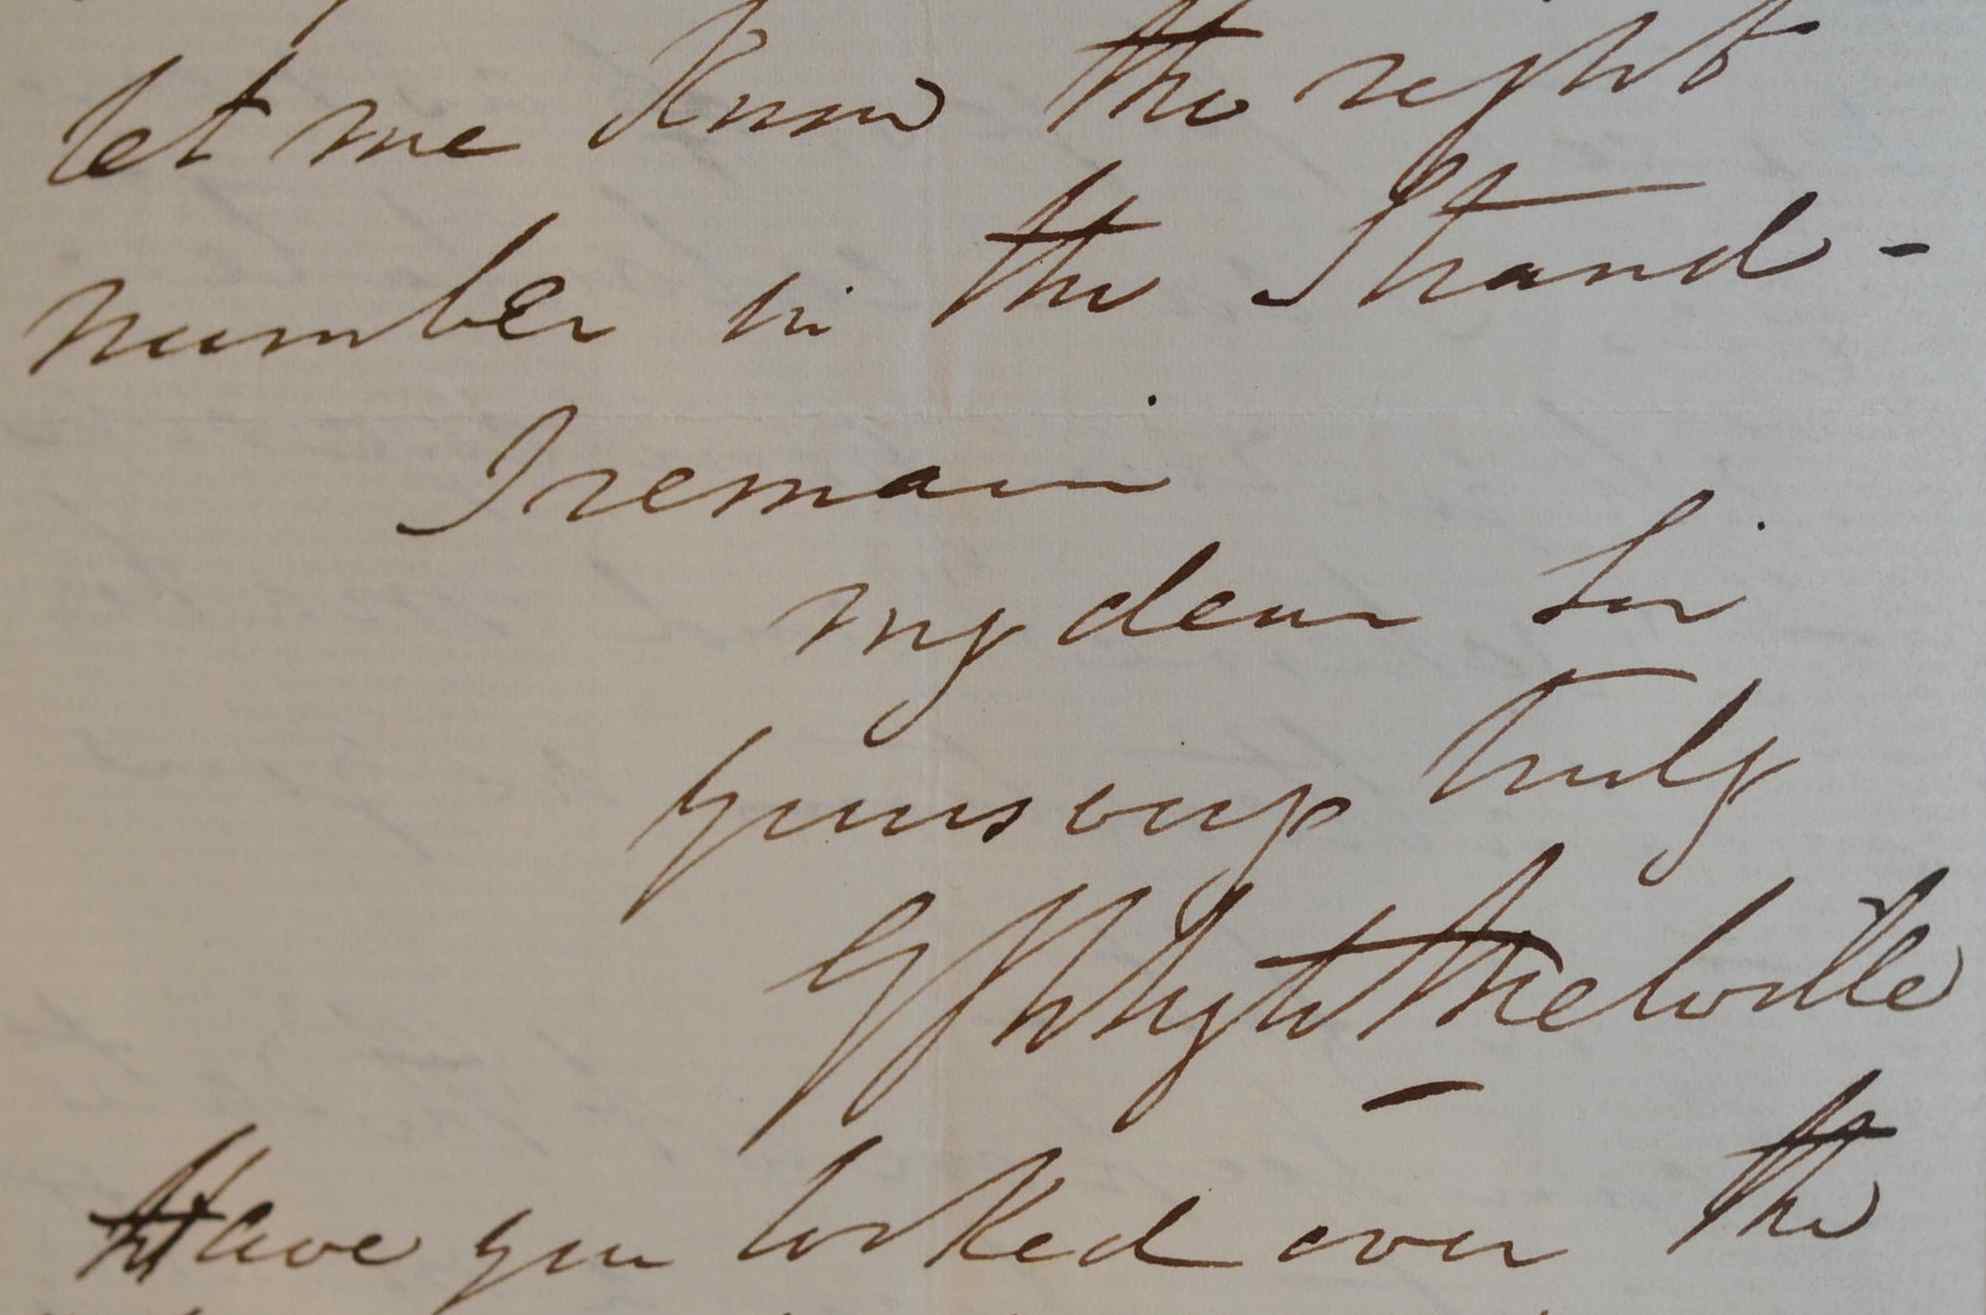 let me know the right
number in the Strand -
I remain
my dear Sir
yours very truly
G J Whyte Melville
Have you looked over the